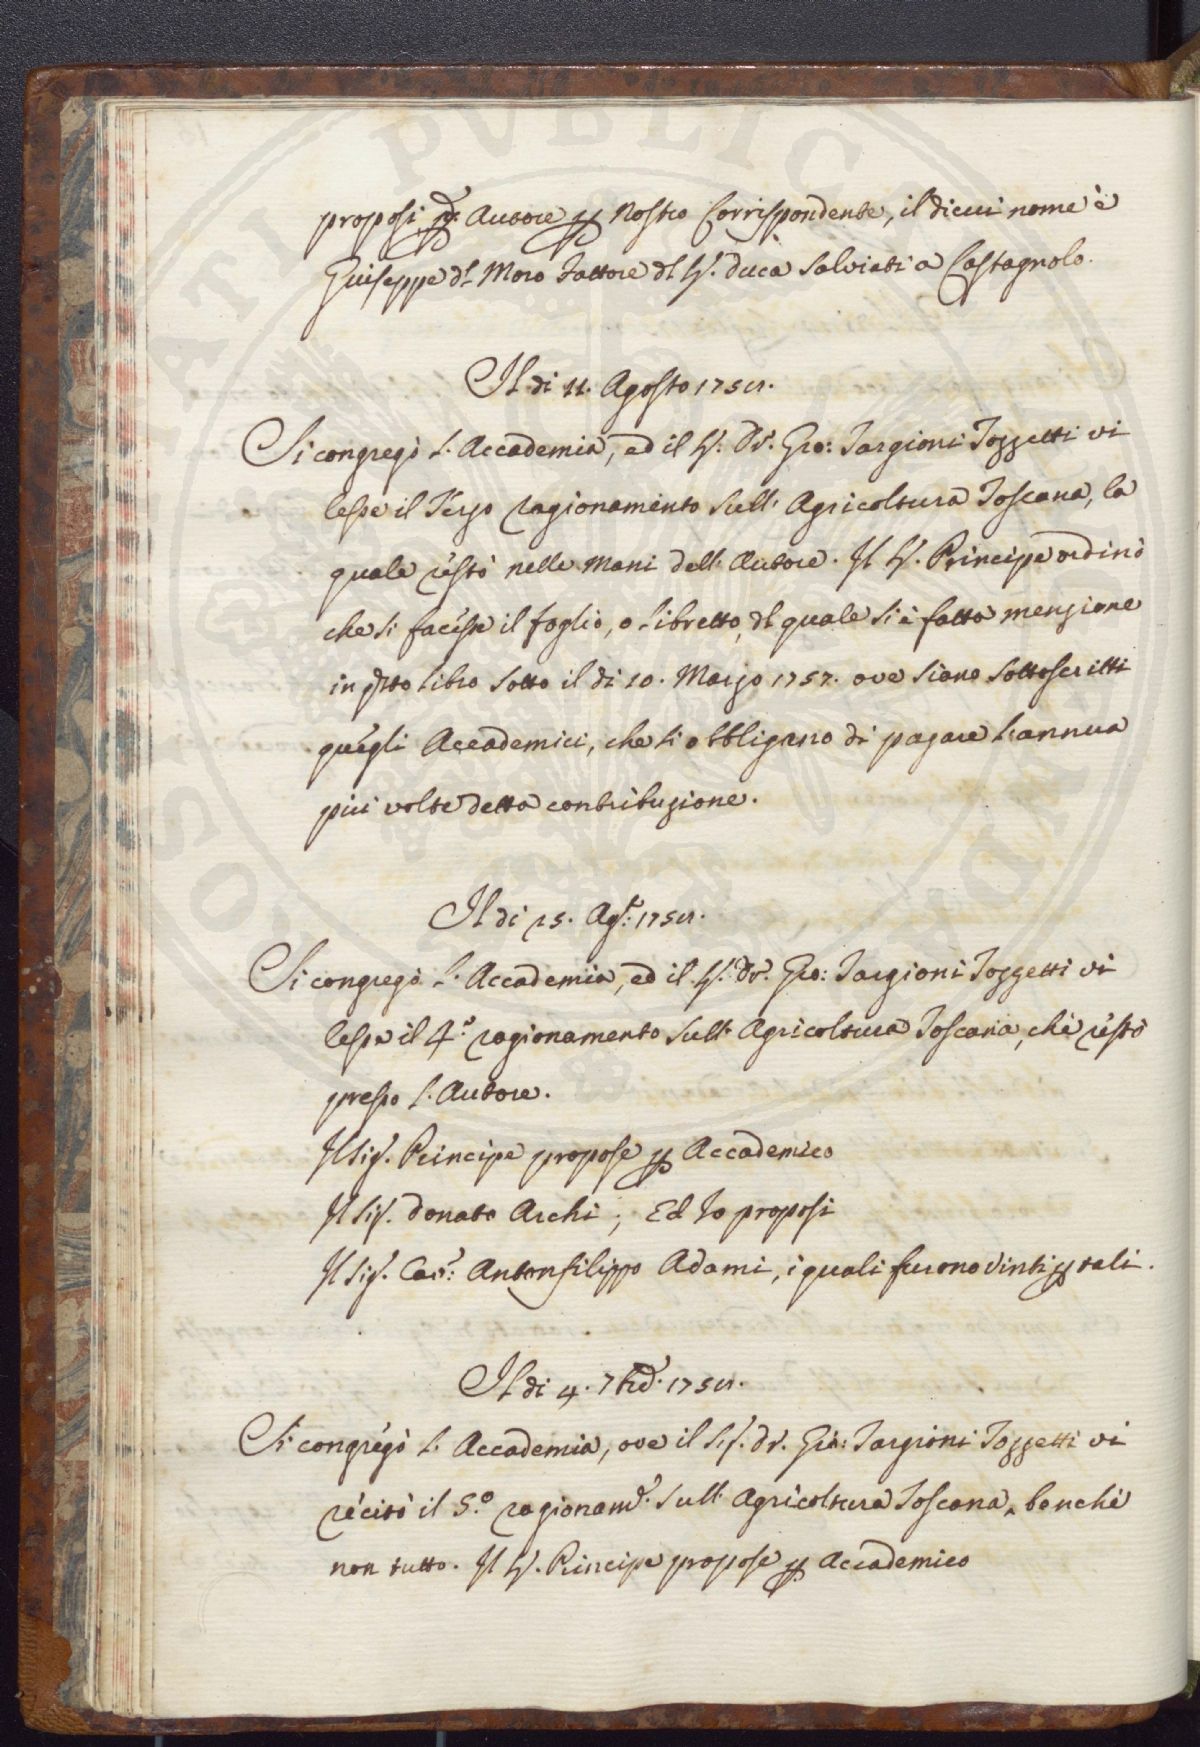 proposi p. Autore p. Nostro Corrispondente, il di cui nome è
Giuseppe dl. Moro Fattore dl S. Duca Salviati a Castagnolo.
Il di 11. Agosto 175
Si congregò l'Accademia, ed il S. Dr. Gio: Targioni Tozzetti vi
lesse il Terzo ragionamento sull'Agricoltura Toscana, la
quale restò nelle mani dell'Autore. Il S. Principe ordinò
che si facesse il foglio, o libretto, dl quale si è fatta menzione
in qsto libro sotto il di 10. Marzo 1757. ove siano sottoscritti
quegli Accademici, che si obbligano di pagare l'annua
più volte detta contribuzione.
Il di 25. Ag.to 175
Si congregò l'Accademia, ed il S. Dr. Gio: Targioni Tozzetti vi
lesse il 4.o ragionamento sull'Agricoltura Toscana, che restò
presso l'Autore.
Il Sig. Principe propose p Accademico
Il Sig. Donato Archi; Ed Io proposi
Il Sig. Cav: Antonfilippo Adami, i quali furono vinti p tali.
Il di 4. 7bre 175
Si congregò l'Accademia, ove il Sig. Dr. Gio: Targioni Tozzetti vi
recitò il 5.o ragionam. sull'Agricoltura Toscana, benchè
non tutto. Il S. Principe propose p Accademico
PVBLICAE